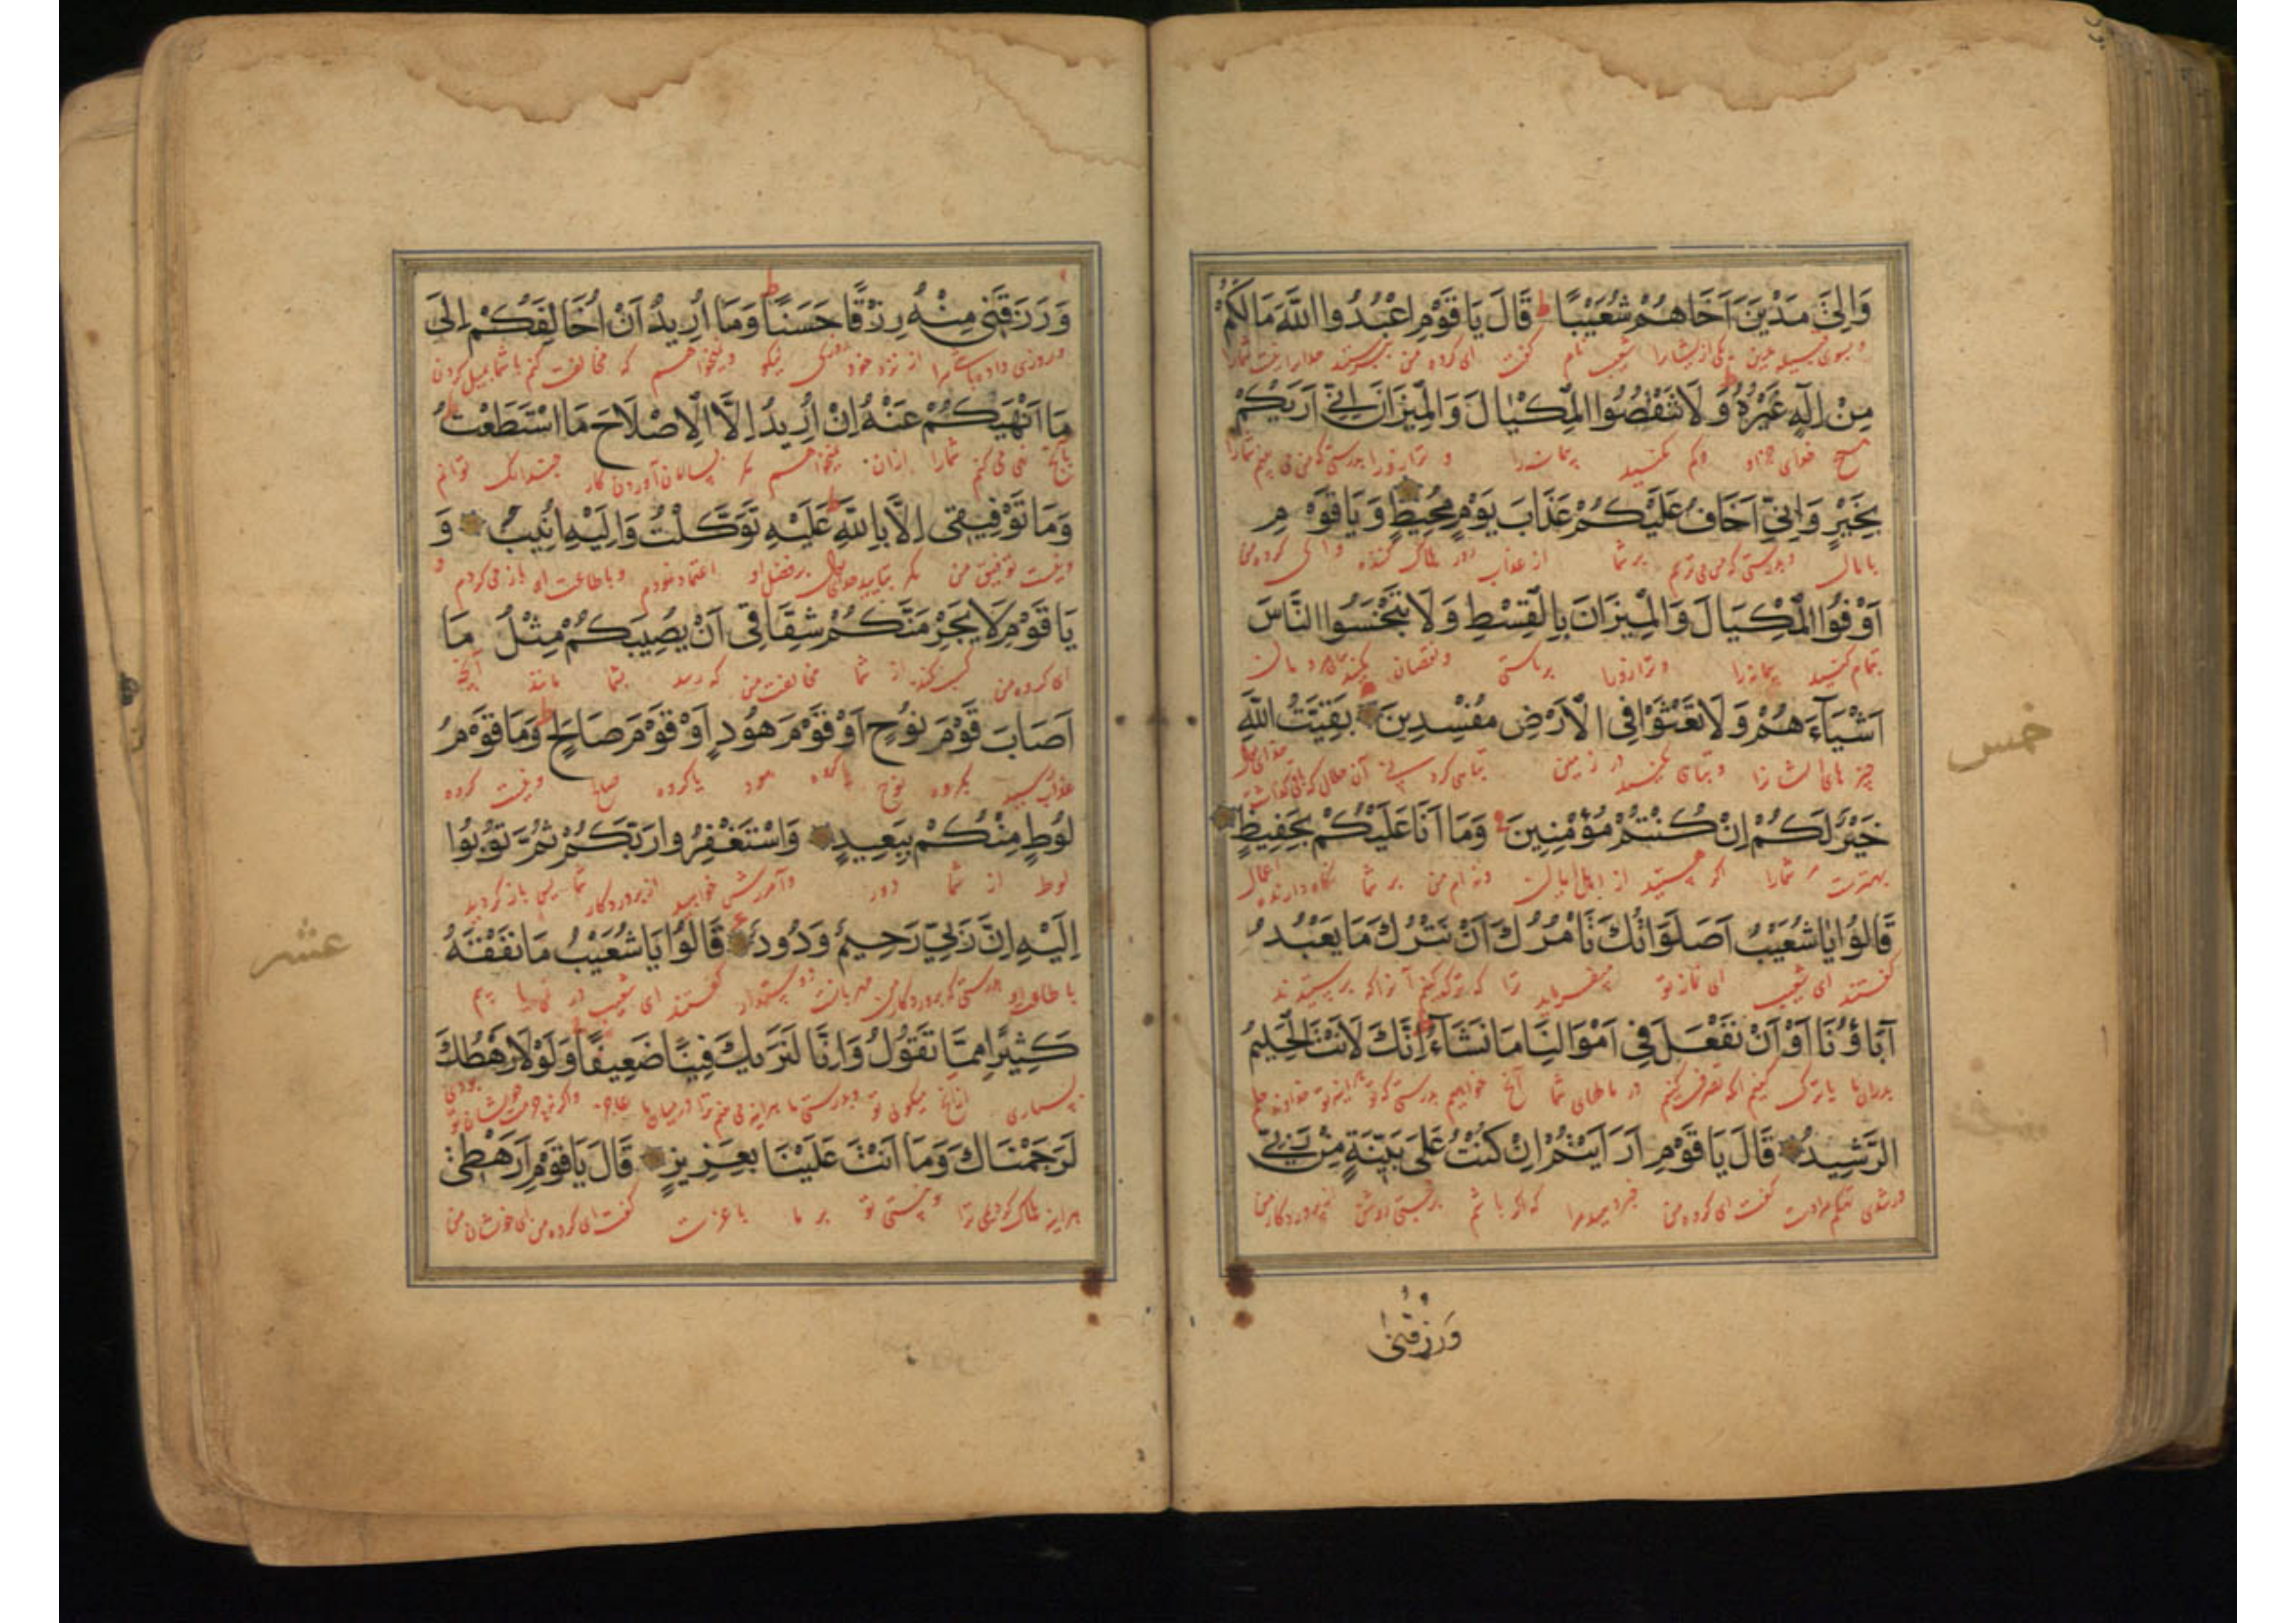 وَاِلىٰ مَدْيَنَ اَخَاهُمْ شُعَيْبًا ط قَالَ يَا قَوْمِ اعْبُدُوا اللّٰهَ مَا لَكُمْ
و بسوی قبیله مدین یکی از یشانرا شعیب نام گفت ای گروه من بپرستید خدا را نیست شمارا
مِنْ اِلٰهٍ غَيْرُهُ وَلَا تَنْقُصُوا الْمِكْيَالَ وَالْمِيزَانَ اِنّي اَرٰيكُمْ
هیچ خدای جز او و کم مکنید پیمانه را و ترازو را بدرستی که من می بینم شمارا
بِخَيْرٍ وَاِنّي اَخَافُ عَلَيْكُمْ عَذَابَ يَوْمٍ مُحِيطٍ وَيَا قَوْمِ
با مال و بدرستی که من می ترسم بر شما از عذاب روز هلاک کننده و ای گروه من
اَوْفُوا الْمِكْيَالَ وَالْمِيزَانَ بِالْقِسْطِ وَلَا تَبْخَسُوا النَّاسَ
تمام کنید پیمانه را و ترازو را براستی و نقصان مکنید مردمان
اَشْيَآءَهُمْ وَلَا تَعْثَوْا فِى الْاَرْضِ مُفْسِدِينَ بَقِيَّتُ اللّٰهِ
چیزهای ایشانرا و تباهی مکنید در زمین آن حلال که
خَيْرٌ لَكُمْ اِنْ كُنْتُمْ مُؤْمِنِينَ وَمَا اَنَا عَلَيْكُمْ بِحَفِيظٍ
بهترست شمارا اگر هستید از اهل ایمان و نه ام من بر شما نگاه دارنده اعمال
قَالُوا يَا شُعَيْبُ اَصَلَوَاتُكَ تَأْمُرُكَ اَنْ نَتْرُكَ مَا يَعْبُدُ
گفتند ای شعیب ای نماز تو میفرماید ترا که ترک کنیم آنرا که پرستیدند
اٰبَاؤُنَا اَوْ اَنْ نَفْعَلَ فِى اَمْوَالِنَا مَا نَشَآءُ اِنَّكَ لَاَنْتَ الْحَلِيمُ
پدران ما یا ترک کنیم آنکه تصرف کنیم در مالهای آنچه خواهیم بدرستی که تو
الرَّشِيدُ قَالَ يَا قَوْمِ اَرَاَيْتُمْ اِنْ كُنْتُ عَلٰى بَيِّنَةٍ مِنْ رَبِّي
گفت ای گروه من خبر دهید مرا که اگر باشم پروردگار من
وَرَزَقَنٖى
خمس
وَرَزَقَنِى مِنْهُ رِزْقًا حَسَنًا ط وَمَا اُرِيدُ اَنْ اُخَالِفَكُمْ اِلىٰ
و روزی داده باشد مرا از نزد خود روزی نیکو و نمیخواهم که مخالفت کنم با شما بمیل کردن
مَا اَنْهٰيكُمْ عَنْهُ اِنْ اُرِيدُ اِلَّا الْاِصْلَاحَ مَا اسْتَطَعْتُ
بآنچه نهی می کنم شمارا ازان نمیخواهم مگر بسامان آوردن کار چندانک توانم
وَمَا تَوْفِيقِى اِلَّا بِاللّٰهِ عَلَيْهِ تَوَكَّلْتُ وَاِلَيْهِ اُنِيبُ وَ
و نیست توفیق من مگر بتایید خدای بر فضل او اعتماد نمودم و باطاعت او باز می گردم و
يَا قَوْمِ لَا يَجْرِمَنَّكُمْ شِقَاقِى اَنْ يُصِيبَكُمْ مِثْلُ مَا
ای گروه من کسب نکند از شما مخالفت من که رسد بشما مانند آنچه
اَصَابَ قَوْمَ نُوحٍ اَوْ قَوْمَ هُودٍ اَوْ قَوْمَ صَالِحٍ وَمَا قَوْمُ
رسید بگروه نوح یا گروه هود یا گروه صالح و نیست گروه
لُوطٍ مِنْكُمْ بِبَعِيدٍ وَاسْتَغْفِرُوا رَبَّكُمْ ثُمَّ تُوبُوا
لوط از شما دور و آمرزش خواهید از پروردگار شما پس باز گردید
اِلَيْهِ اِنَّ رَبِّي رَحِيمٌ وَدُودٌ قَالُوا يَا شُعَيْبُ مَا نَفْقَهُ
بدرستی که پروردگار من مهربانست دوستدار گفتند ای شعیب در نمی یابیم
كَثِيرًا مِمَّا تَقُولُ وَاِنَّا لَنَرٰيكَ فِينَا ضَعِيفًا وَلَوْلَا رَهْطُكَ
بسیاری ازانچه میگوئی تو و بدرستی ما هر اینه می بینیم ترا در میان ما عاجز
لَرَجَمْنَاكَ وَمَا اَنْتَ عَلَيْنَا بِعَزِيزٍ قَالَ يَا قَوْمِ اَرَهْطِى
هراینه هلاک کردیمی ترا و نیستی تو بر ما با عزت گفت ای گروه من ای خویشان من
عشر